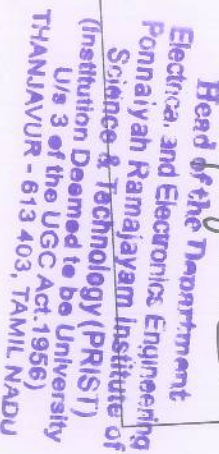 Head of the Department
Electrical and Electronics Engineering
Ponnaiyah Ramajayam Institute of
Science & Technology (PRIST)
(Institution Deemed to be University
U/s 3 of the UGC Act. 1956)
THANJAVUR - 613 403, TAMIL NADU